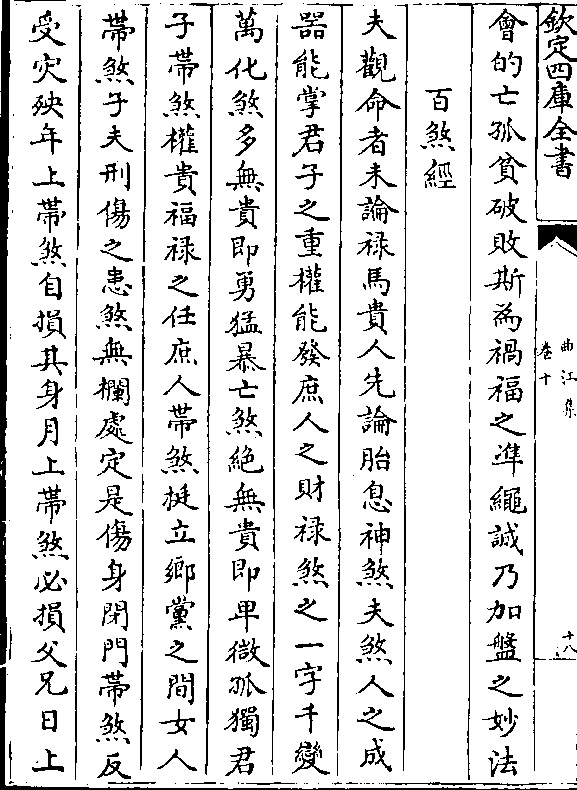 欽定四庫全書
曲江集
卷十
十八
會的亡孤貧破敗斯為禍福之準繩誠乃加盤之妙法
百煞經
夫觀命者未論祿馬貴人先論胎息神煞夫煞人之成
器能掌君子之重權能發庶人之財祿煞之一字千變
萬化煞多無貴即勇猛暴亡煞絕無貴即卑微孤獨君
子帶煞權貴福祿之任庶人帶煞挺立鄉黨之間女人
帶煞子夫刑傷之患煞無欄處定是傷身閉門帶煞反
受災殃年上帶煞自損其身月上帶煞必損父兄日上